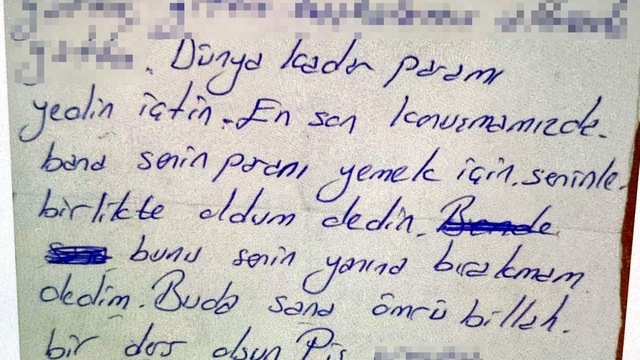 . Dünya kadar paramı
yedin içtin. En son konuşmamızda.
bana senin paranı yemek için. seninle.
birlikte oldum dedin.
bunu senin yanına bırakmam
dedim. Buda sana ömrü billah.
bir ders olsun Pis